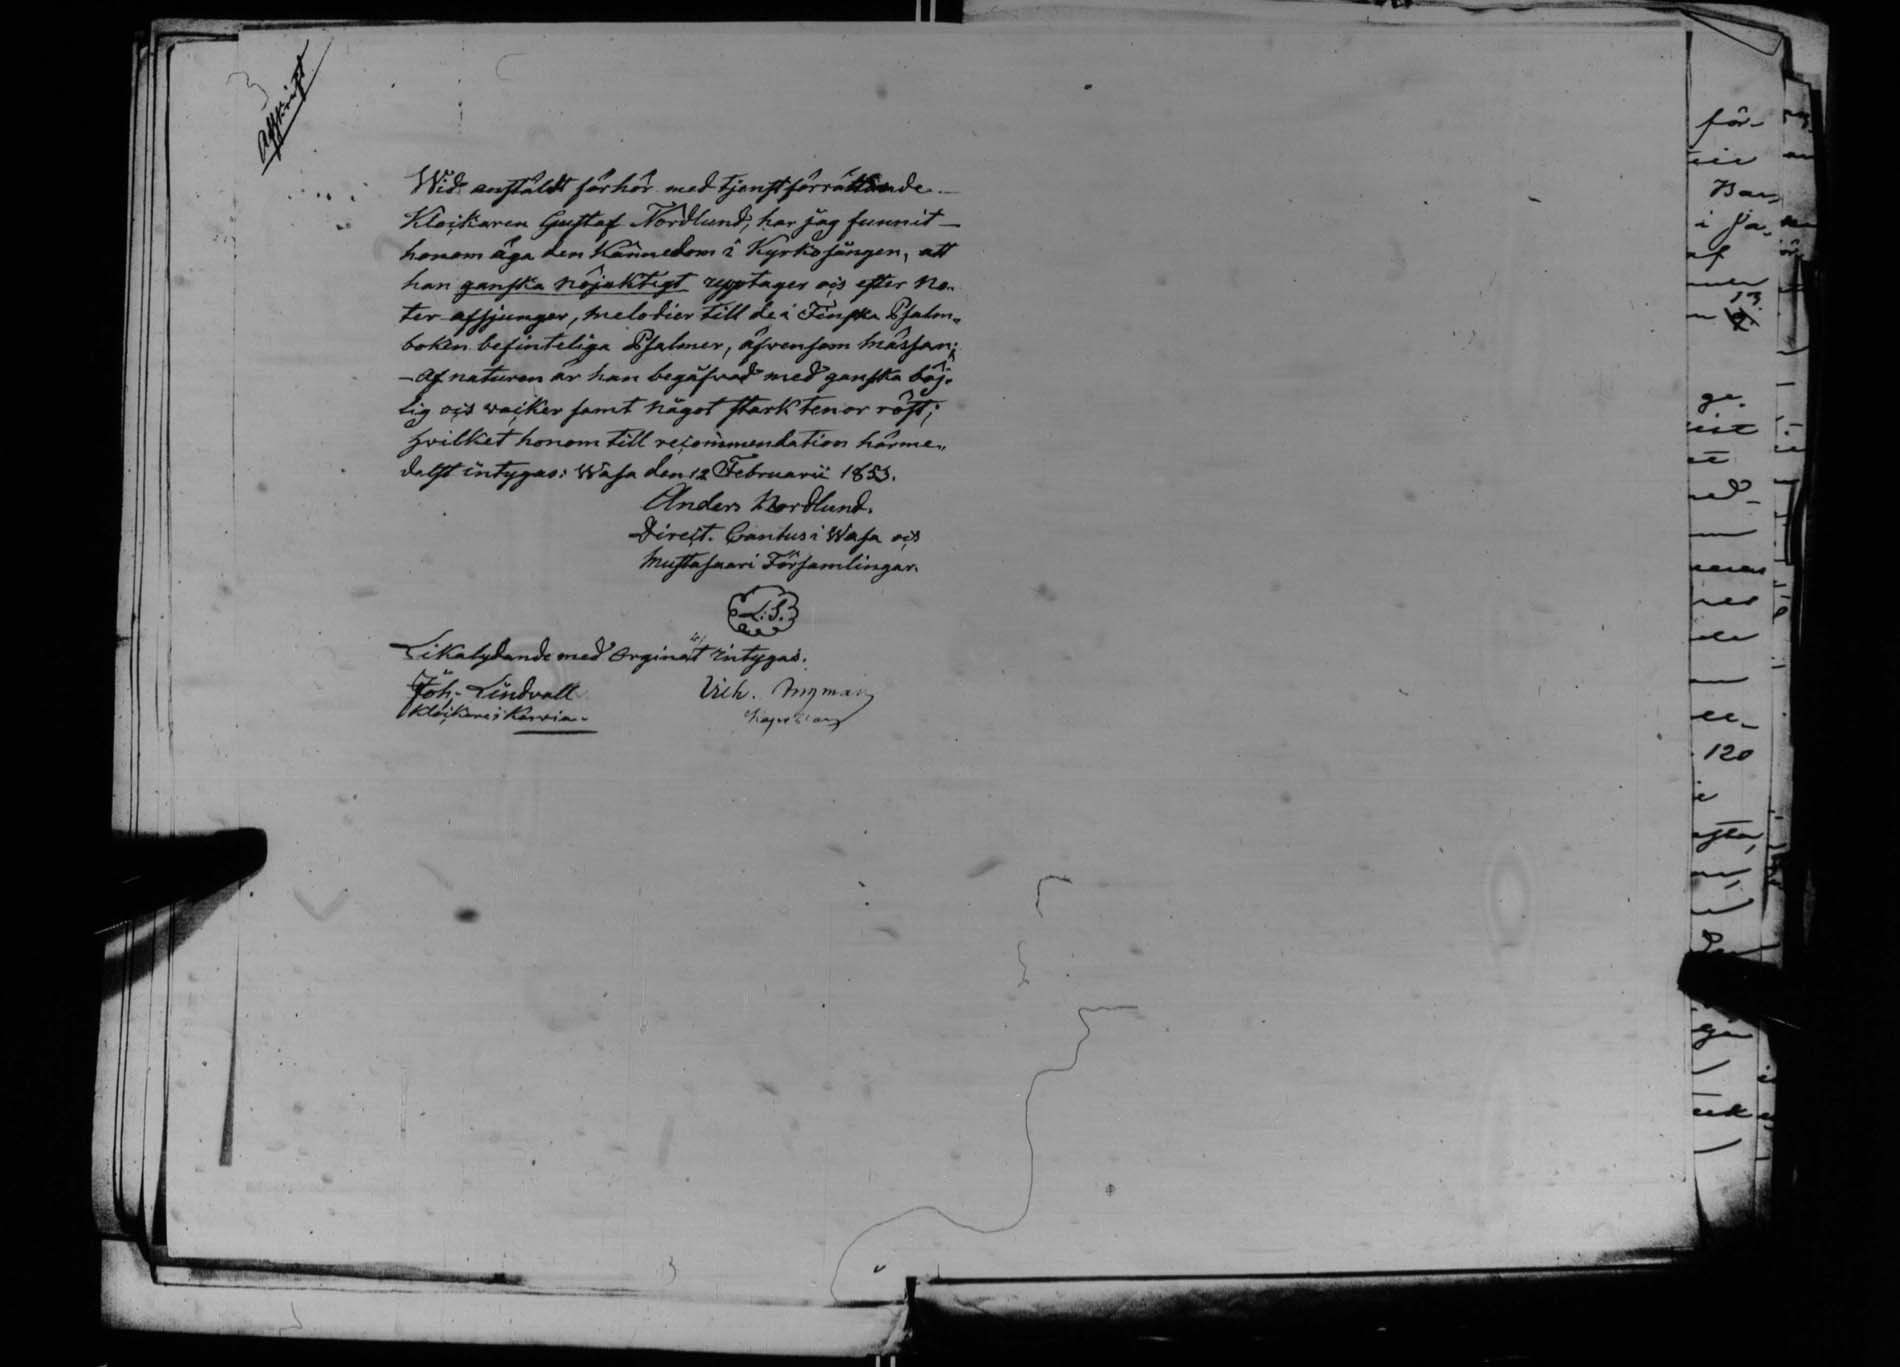 Afskrift
Wid anstäldt förhör med tjenstförrättande
Klockaren Gustaf Nordlund, har jag funnit
honom äga den kännedom i Kyrkosången, att
han ganska nöjaktigt upptager och efter no-
ter afsjunger, melodier till de i Finska Psalm-
boken befinteliga Psalmer, äfvensom mässan;
– Af naturen är han begåfvad med ganska böj-
lig och wacker samt något stark tenor röst;
hvilket honom till recommendation härme-
delst intygas: Wasa den 12 Februarii 1853.
Anders Nordlund.
Direct. Cantus i Wasa och
Mustasaari Församlingar.
L.S.
Likalydande med orginalet intygas.
Joh. Lindvall Vilh. Ingman
Klockare i Karvia. Kapellan
för-
i
af
13
ge
120